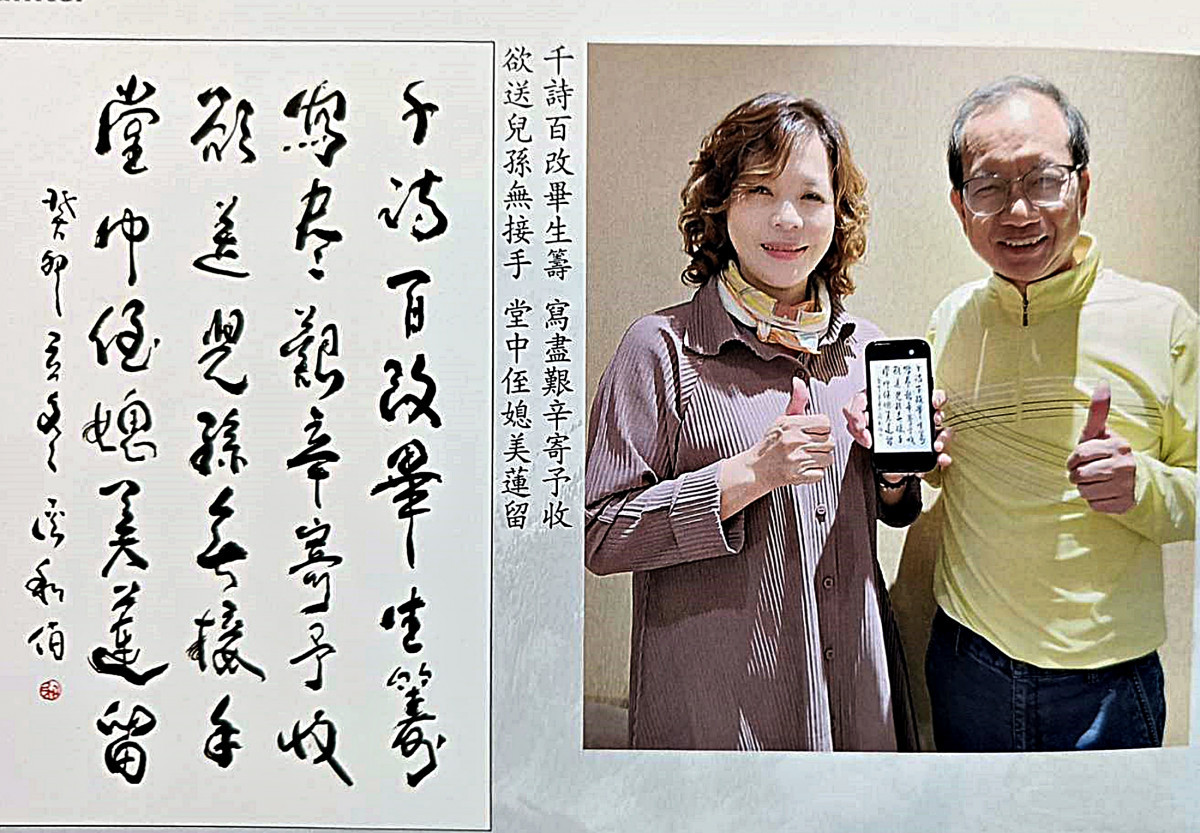 千詩百改畢生籌
寫盡艱辛寄予收
欲送兒孫無接手
堂中侄媳美蓮留
癸卯
千詩百改畢生籌 寫盡艱辛寄予收
欲送兒孫無接手 堂中侄媳美蓮留